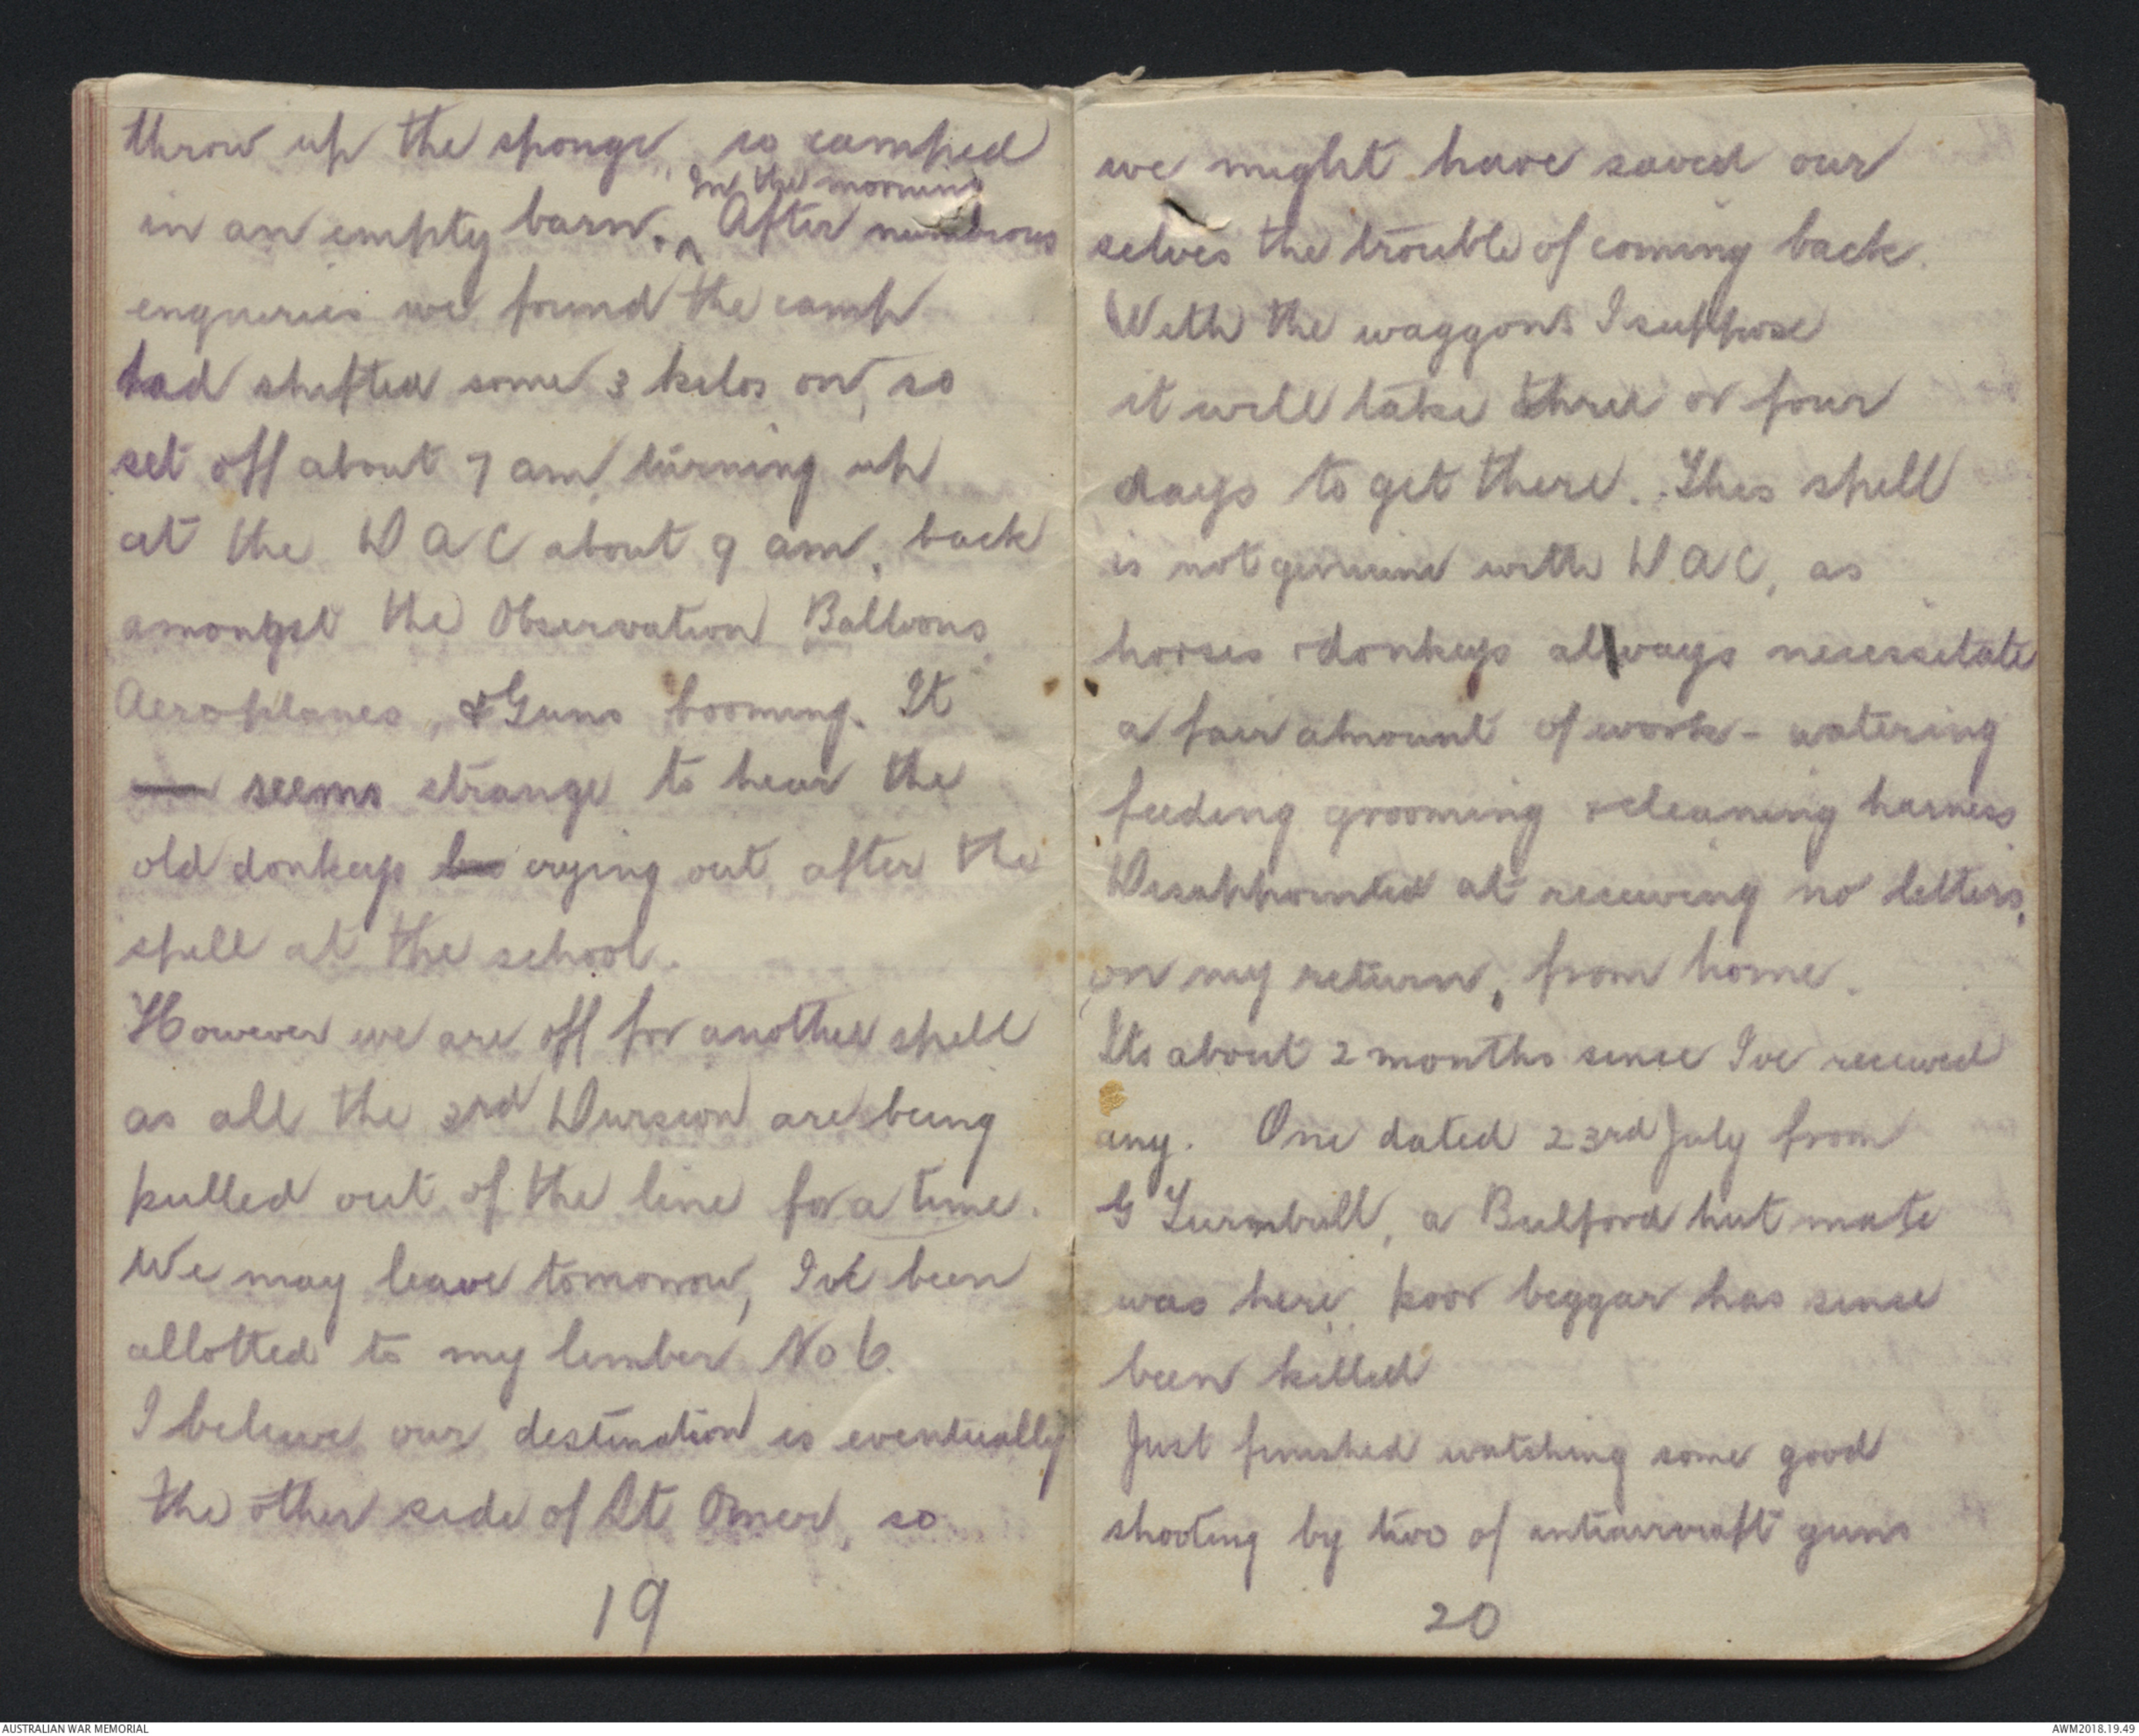 throw up the sponge, so camped
In the morning
in an empty barn. ^ After numbrous
enqueries we found the camp
had shifted some 3 kilos on, so
set off about 7 am, turning up
at the D A C about 9 am, back
amongst the Observation Balloons
Aeroplanes, & Guns booming. It
seems strange to hear the
old donkeys crying out, after the
spell at the school.
However we are off for another spell
as all the 3rd Division are being
pulled out of the line for a time.
We may leave tomorrow, I've been
allotted to my limber No 6.
I believe our destination is eventually
the other side of St Omer, so
19
we might have saved our
selves the trouble of coming back.
With the waggons I suppose
it will take three or four
days to get there. This spell
is not genuine with D A C, as
horses & donkeys always necessitate
a fair amount of work - watering
feeding grooming & cleaning harness
Disappointed at receiving no letters,
on my return, from home.
Its about 2 months since Ive received
any. One dated 23rd July from
G Turnbull, a Bulford hut mate
was here, poor beggar has since
been killed
Just finished watching some good
shooting by two of antiaircraft guns
20
AUSTRALIAN WAR MEMORIAL
AWM2018.19.49